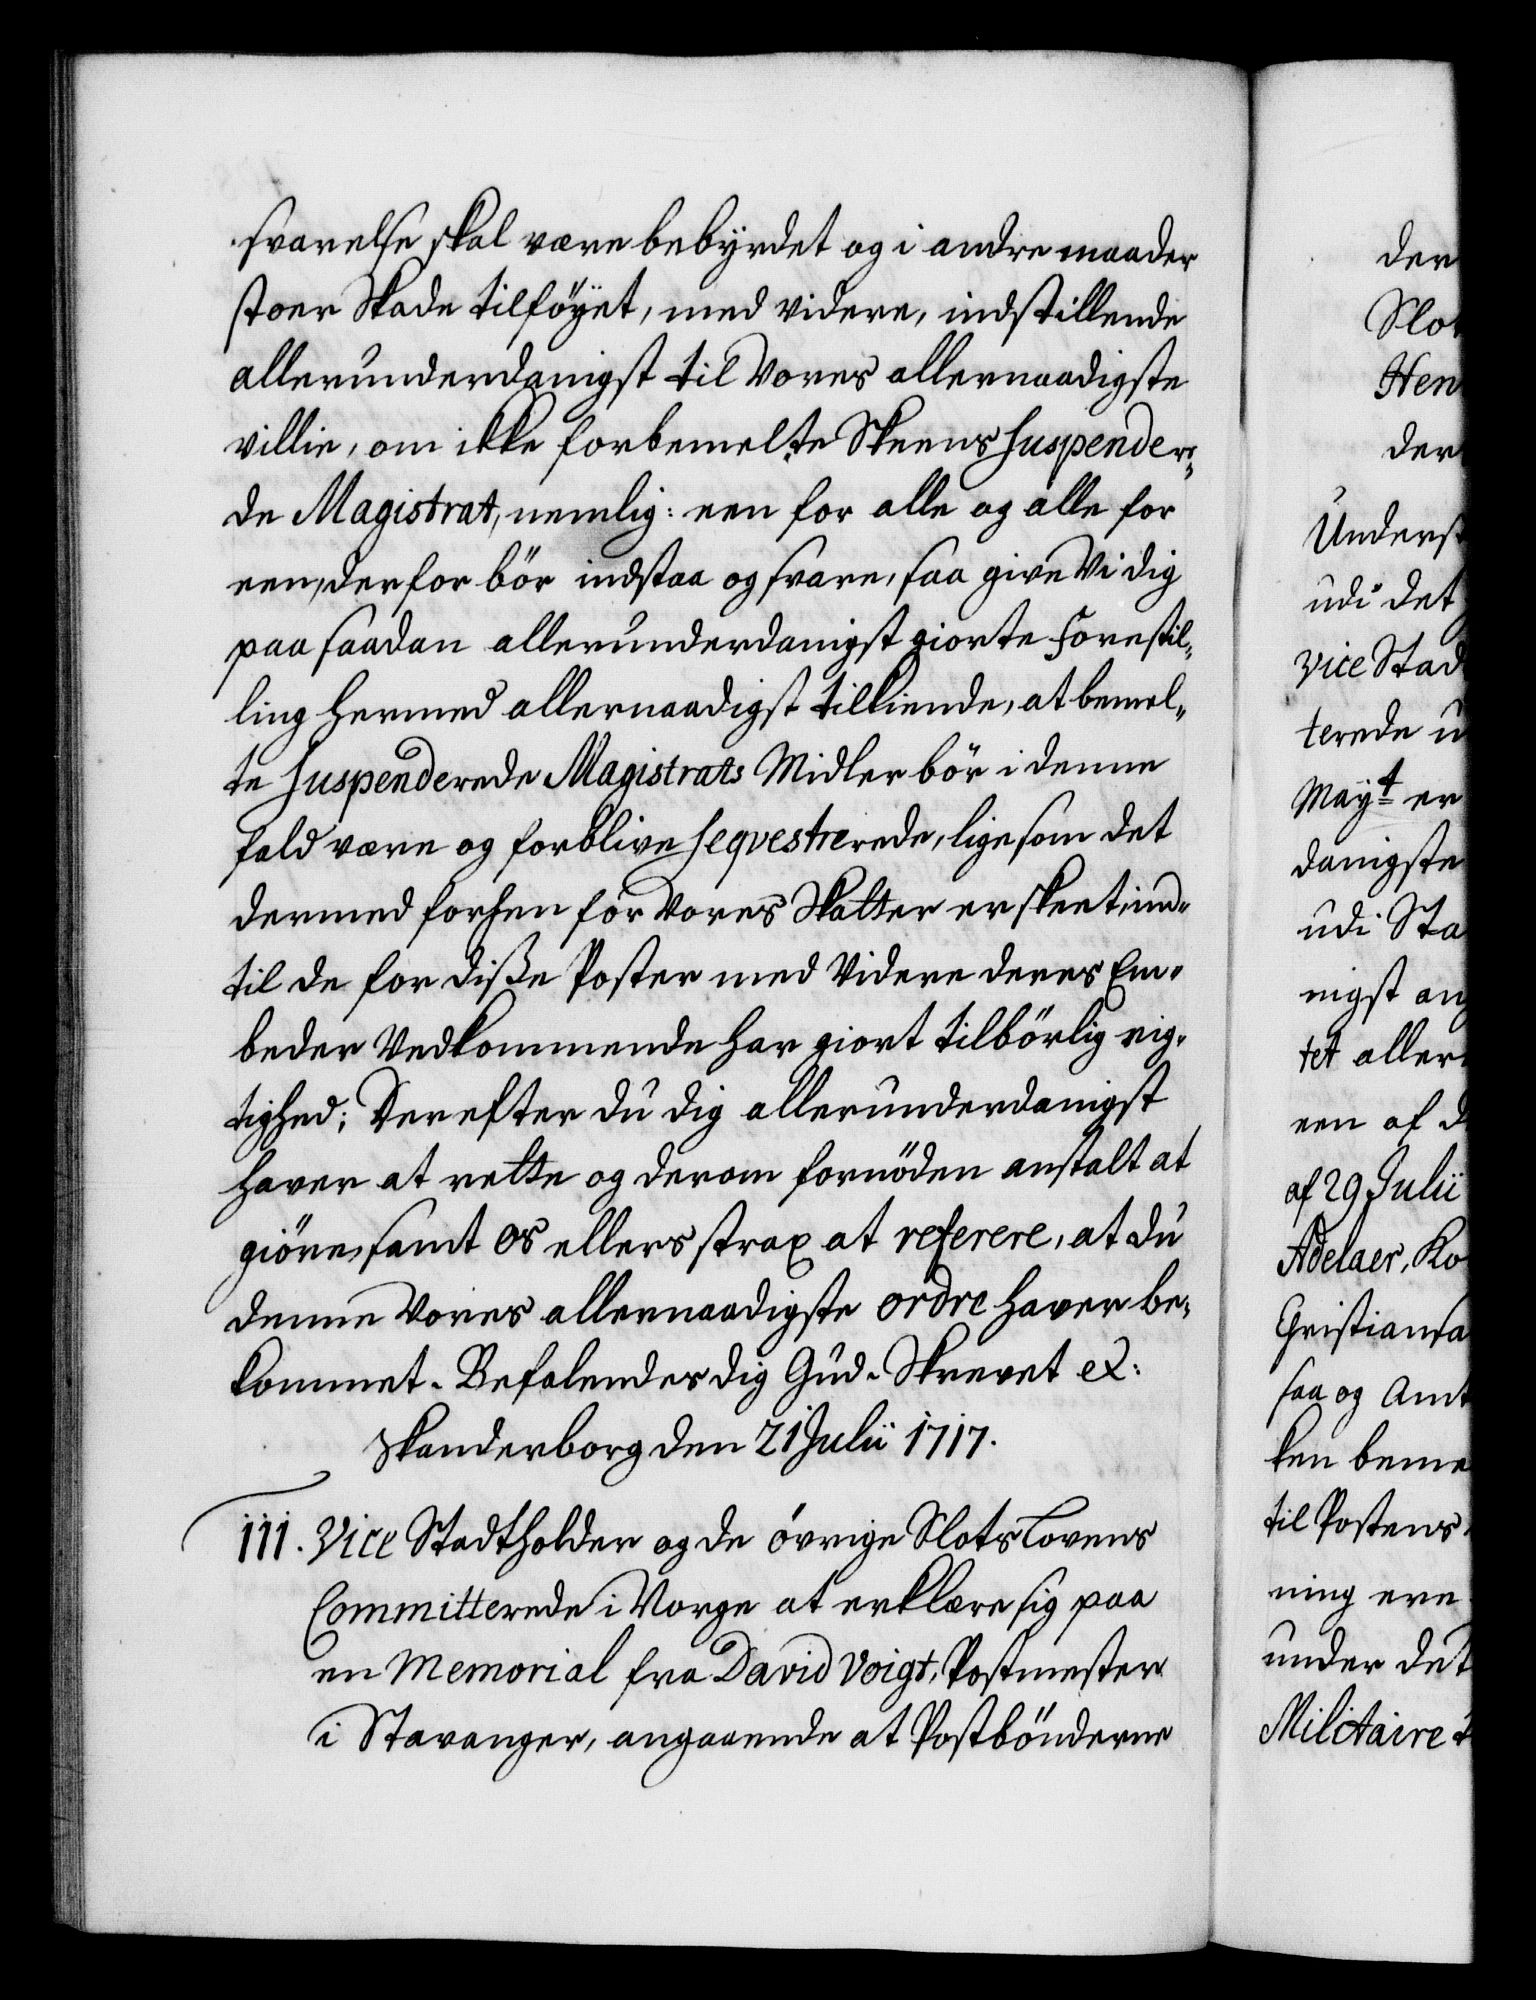 svarelse skal være bebyrdet og i andre maader
stoer Skade tilföÿet, med videre, indstillende
allerunderdanigst til Vores allernaadigste
villie, om ikke forbemelte Skeens Suspendere„
de Magistrat, nemlig: een for alle og alle for
een, derfor bör indstaa og svare, saa give Vi dig
paa saadan allerunderdanigst giorte Forestil„
ling hermed allernaadigst tilkiende, at bemel„
te Suspenderede Magistrats Midler bör i denne
fald være og forblive seqvestrerede, ligesom det
dermed forhen for Vores Skatter er skeet, ind„
til de for disse Poster med Videre deres Em„
beder Vedkommende har giort tilbörlig rig„
tighed; Derefter du dig allerunderdanigst
haver at rette og derom fornöden anstalt at
giöre, samt os ellers strax at referere, at du
denne Vores allernaadigste ordre haver be„
kommet. Befalendes dig Gud. Skrevet &:
Skanderborg den 21 Julii 1717.
111. Vice Stadtholder og de övrige Slots Lovens
Committerede i Norge at erklære sig paa
en Memorial fra David Voigt, Postmester
i Stavanger, angaaende at Postbönderne
der
Slot
Hen
der
Underst
udi det
vice Stad
terede u
Mayt er
danigste
udi Sta
nigst ang
tet aller
een af d
af 29 Julii
Adelaer, Ko
Christiansa
saa og Amt
ken beme
til Postens
ning ere
under det
Militaire